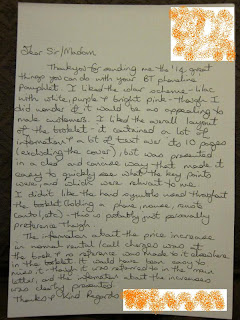 Dear Sir/Madam
Thankyou for sending me the '14 great
things you can do with your BT phoneline'
Pamphlet. I liked the colour scheme - lilac
with white, purple & bright pink - though I
did wonder if it would be as appealing to
male customers. I liked the overall layout
of the booklet - it contained a lot of
information & a lot of text over its 10 pages
(excluding the cover), but was presented
in a clear and concise way that made it
easy to quickly see what the key points
were, and which were relevant to me.
I didn't like the hand symbol used throughout
the booklet (holding a phone, mouse, remote
control, etc) - this is probably just personally
preference though.
The information about the price increases
in normal rental / call charges was at
the back & no reference was made to it elsewhere
in the booklet. It could have been easy to
miss it - though it was referred to in the main
letter, and the information about the increases
was clearly presented.
Thanks & Kind Regards